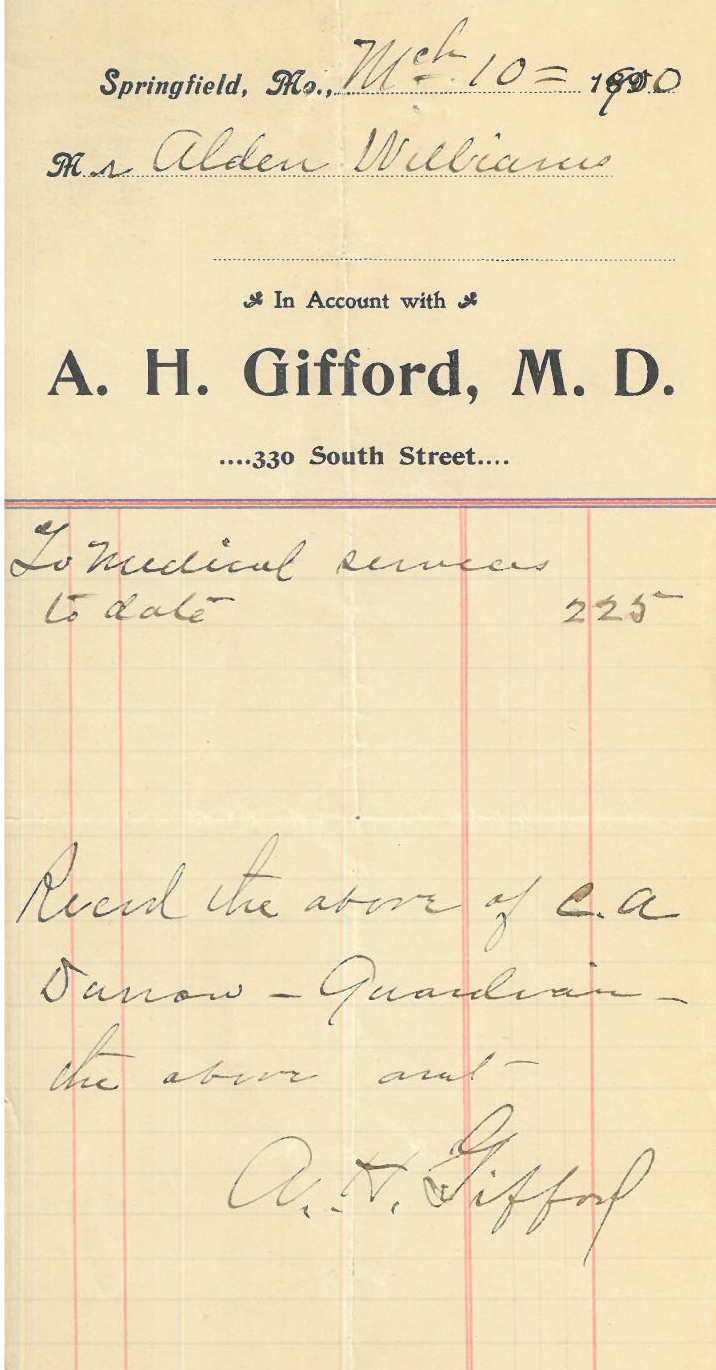 Springfield, Mo., Mch 10 = 1900
Mr Alden Williams
In Account with
A. H. Gifford, M. D.
....330 South Street....
To Medical services
to date 2 25
Recd the above of C. A
Darrow - Guardian -
the above amt -
A. H. Gifford